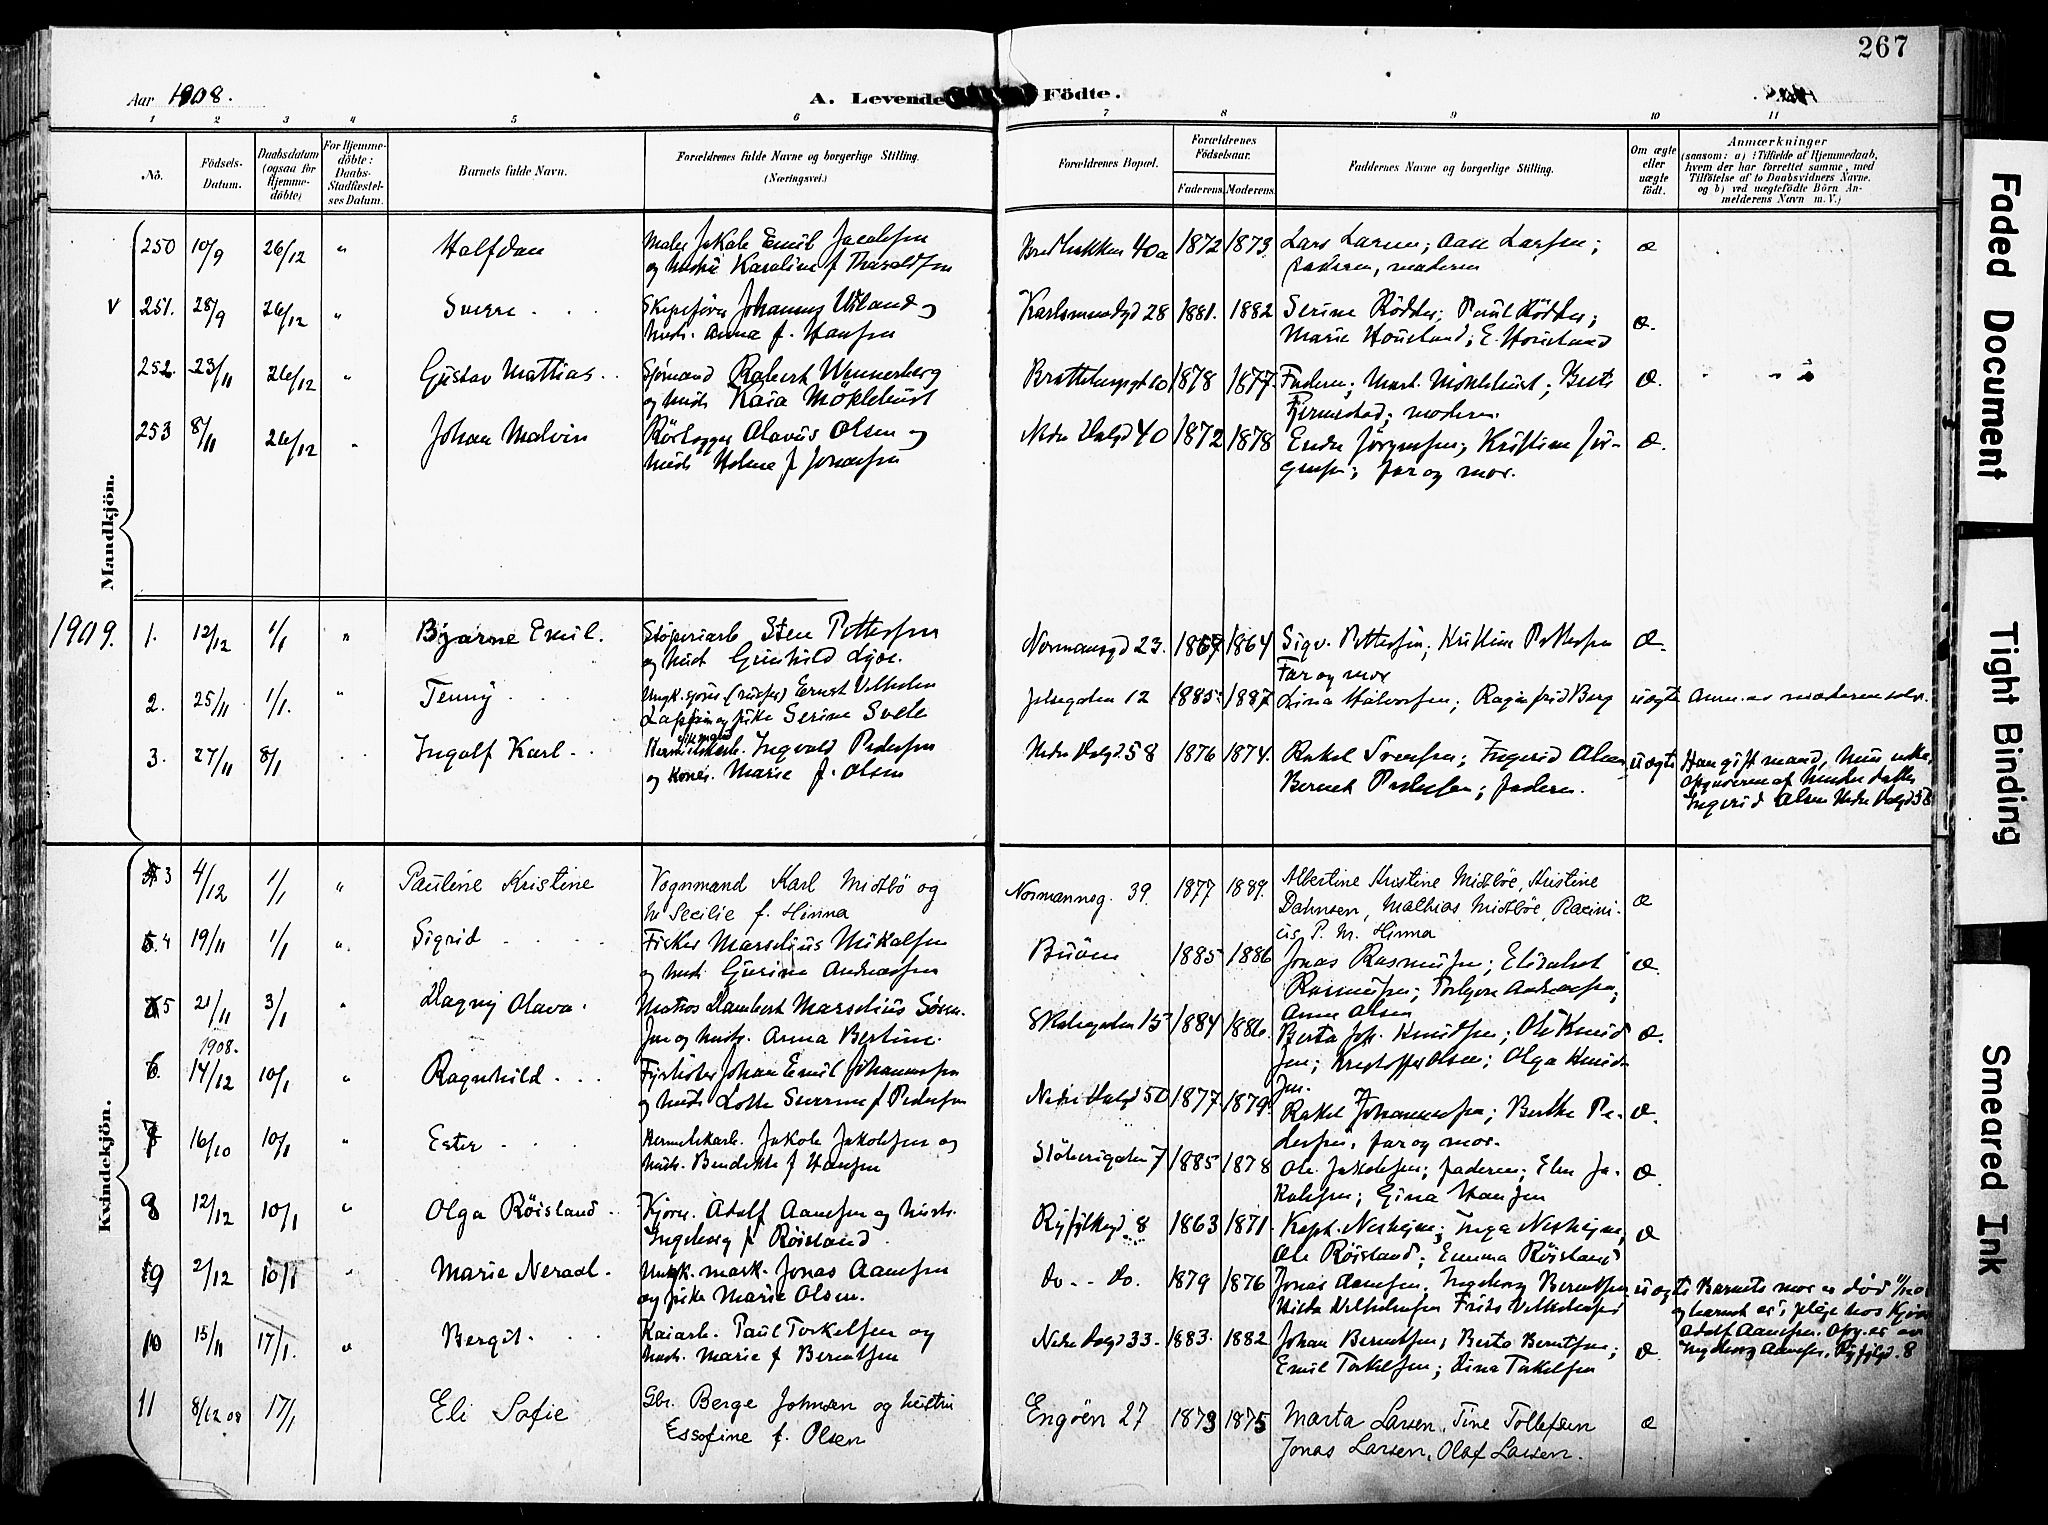 267
Aar 1908.
A. Levende Födte.
1 2 3 4 5 6 7 8 9 10 11
No.
Födsels-
Datum.
Daabsdatum
(ogsaa for
Hjemme-
döbte)
For Hjemme-
döbte:
Daabs-
Stadfæstel-
ses Datum.
Barnets fulde Navn.
Forældrenes fulde Navne og borgerlige Stilling.
(Næringsvei.)
Forældrenes Bopæl.
Forældrenes
Födselsaar.
Faderens. Moderens.
Faddernes Navne og borgerlige Stilling.
Om ægte
eller
uægte
født.
Anmærkninger
(saasom: a) i Tilfælde af Hjemmedaab,
hvem der har forrettet samme, med
Tilföielse af to Daabsvidners Navne.
og b) ved uægtefödte Börn An-
melderens Navn m. V.)
Mandkjön.
250 10/9 26/12 " Halfdan Maler Jakob Emil Jacobsen 40a 1872 1873. Lars Larsen; Aase Larsen; æ
og hustru Karoline f. Tharaldsen faderen, moderen
V 251. 28/9 26/12 " Sverre Johannes og Karlsmindegd 28 1881. 1882 Serine Rödder; Paul Rödder; æ.
hustr. Anna f. Hansen Marie Houeland; E. Houeland
252. 23/11 26/12 " Gustav Mattias Sjømand Robert Wennerberg 1878 1877. Faderen; Mart. Möklebust; Berte æ.
og hustr. Kaia Möklebust Fjermestad; moderen
253 8/11 26/12 " Johan Malvin Rörlegger Olavus Olsen og Nedre Dalgd 40 1872 1878 Endre Jörgensen; Kristine Jör- æ.
hustr. Helene f. Jonassen gensen; far og mor.
1909.
1. 12/12 1/1 " Bjarne Emil. Støperiarb Sten Pettersen Normansgd 23. 1857 1864 Sigv. Pettersen; Kristine Pettersen æ.
og hust Gunhild Lyse. Far og mor
2. 25/11 1/1. " Jenny Ungk. Ernst Vilhelm Jelsegaten 12 1885 1887 Lina Halvorsen; Ragnfrid Berg uægte Anm. av moderen selv.
og pike Serine Svele
3. 27/11 8/1 Ingolf Karl Hermetikarb. Ingvald Pedersen Nedre Dalgd 58 1876 1874. Rakel Svensen; Ingrid Olsen uægte Han gift mand, hun enke.
og kone. Marie f. Olsen Bernet Pedersen; faderen. Opgiveren af hendes datter
Ingerid Olsen Nedre Dalgd 58
Kvindekjön.
3 4/12 1/1 " Pauline Kristine Vognmand Karl Midtbö og Normannsg. 39. 1877 1889. Albertine Kristine Midtböe, Kristine æ
h. Secilie f. Hinna Dahnsen, Mathias Midtböe, Racini-
us P. M. Hinna
4 19/11 1/1 " Sigrid Fisker Marselius Mikalsen Buöen 1885 1886 Jonas Rasmusen; Elisabet æ.
og hust. Gurine Andreassen Rasmusen; Torbjørn Andreassen;
Anne Olsen
5 21/11 3/1 " Dagny Olava. Matros Lambert Marselius Søren- 15 1884 1886. Berta Joh. Knudsen; Ole Knud- æ.
1908. sen og hustr. Anna Bertine. sen; Kristoffer Olsen; Olga Knud-
sen.
6. 14/12 10/1 " Ragnhild Fyrbøter Johan Emil Johannessen Nedre Dalgd 50 1877 1879. Rakel Johannessen; Berthe Pe- æ.
og hustr. Lotte Severine f. Pedersen dersen, far og mor.
7 16/10 10/1 " Ester Hermetikarb. Jakob Jakobsen og 7 1885 1878 Ole Jakobsen; faderen; Elen Ja- æ.
hustr. Bendikte f. Hansen kobsen; Gina Hansen
8 12/12 10/1 " Olga Röisland Kjørm. Adolf Aanesen og hustr. Ryfylkegd. 8 1863 1871 Kapt. Neshejm; Inga Neshejm, æ
Ingeborg f. Röisland Ole Röisland; Emma Röisland
9 2/12 10/1 " Marie Neraal. Ungk. mask. Jonas Aanesen do. - do. 1879 1876 Jonas Aanesen, Ingeborg Berentsen uægte Barnets mor er död
og pike Marie Olsen. Hilda Vilhelmsen Frits Vilhelmsen og barnet er i pleje hos Kjørm.
Adolf Aanesen. Opg. er av
10 15/11 17/1. " Bergit. Kaiarb. Paul Torkelsen og Nedre Dalgd 33. 1883. 1882 Johan Berentsen; Berta Berentsen; æ. Ingeborg Aanesen, Ryfylgd. 8
hustr. Marie f. Berentsen Emil Torkelsen; Lina Torkelsen
11 8/12 08 17/1 Eli Sofie Gbr. Berge Johnsen og hustru Engöen 27 1873 1875 Marta Larsen, Tine Tollefsen æ
Essofine f. Olsen Jonas Larsen, Olaf Larsen.
Faded Document
Tight Binding
Smeared Ink